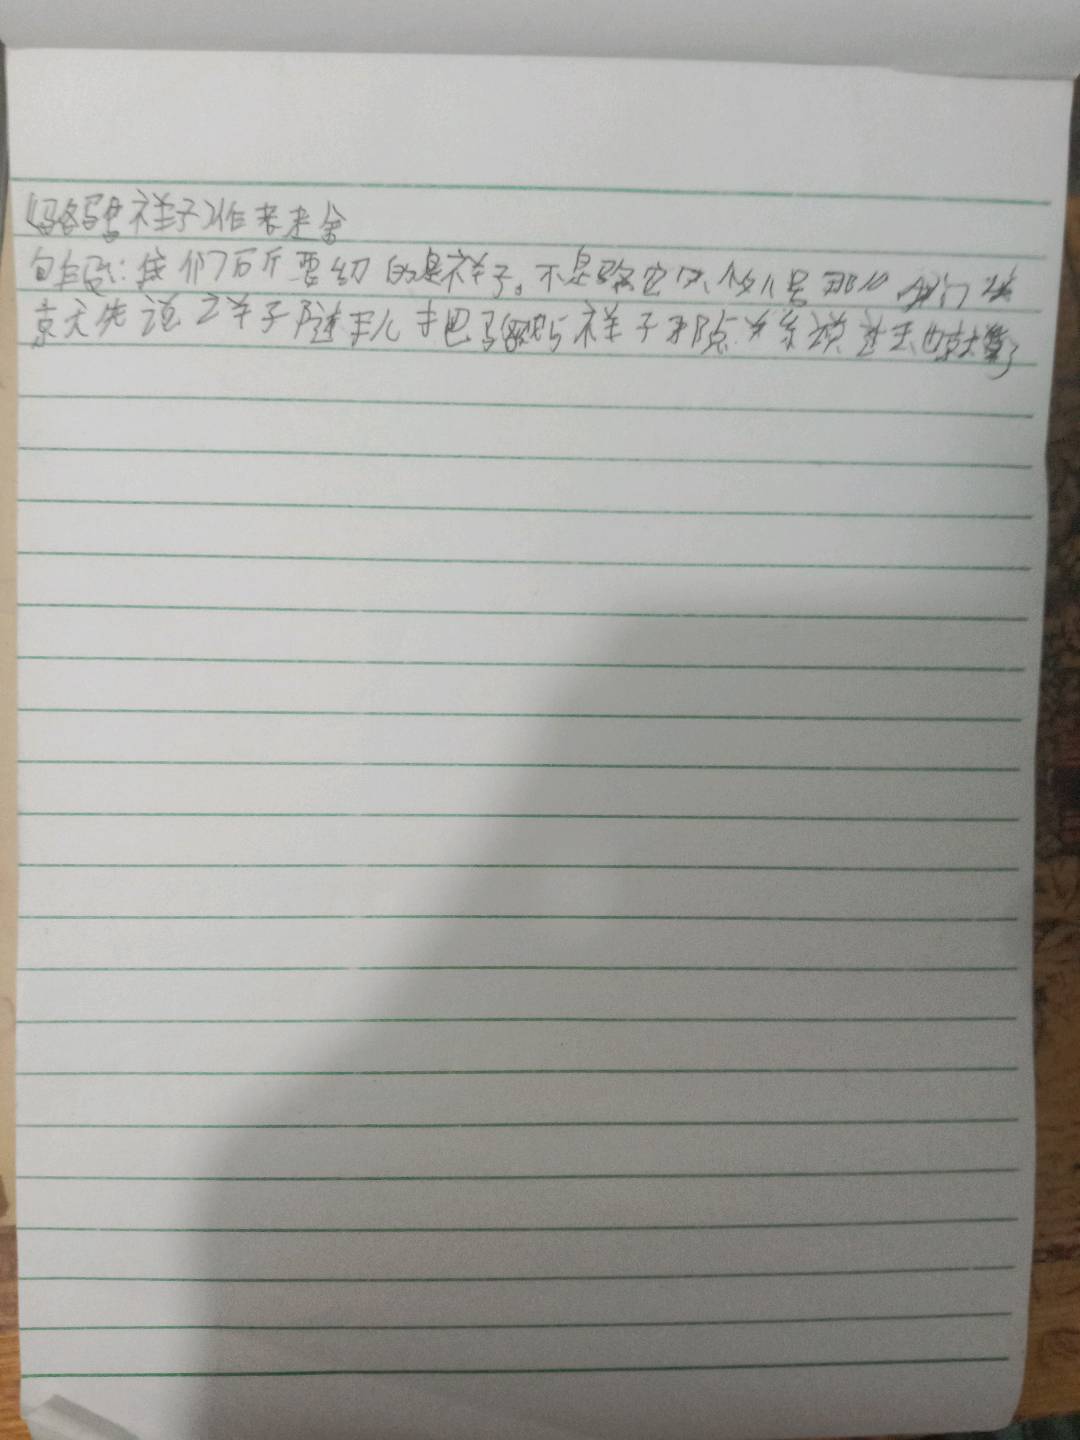 《骆驼祥子》作者老舍
句段:我们所要介绍的是祥子。不是骆驼只个外号那么我们就
先说祥子随手儿把骆驼与祥子那点关系说过去也就算了